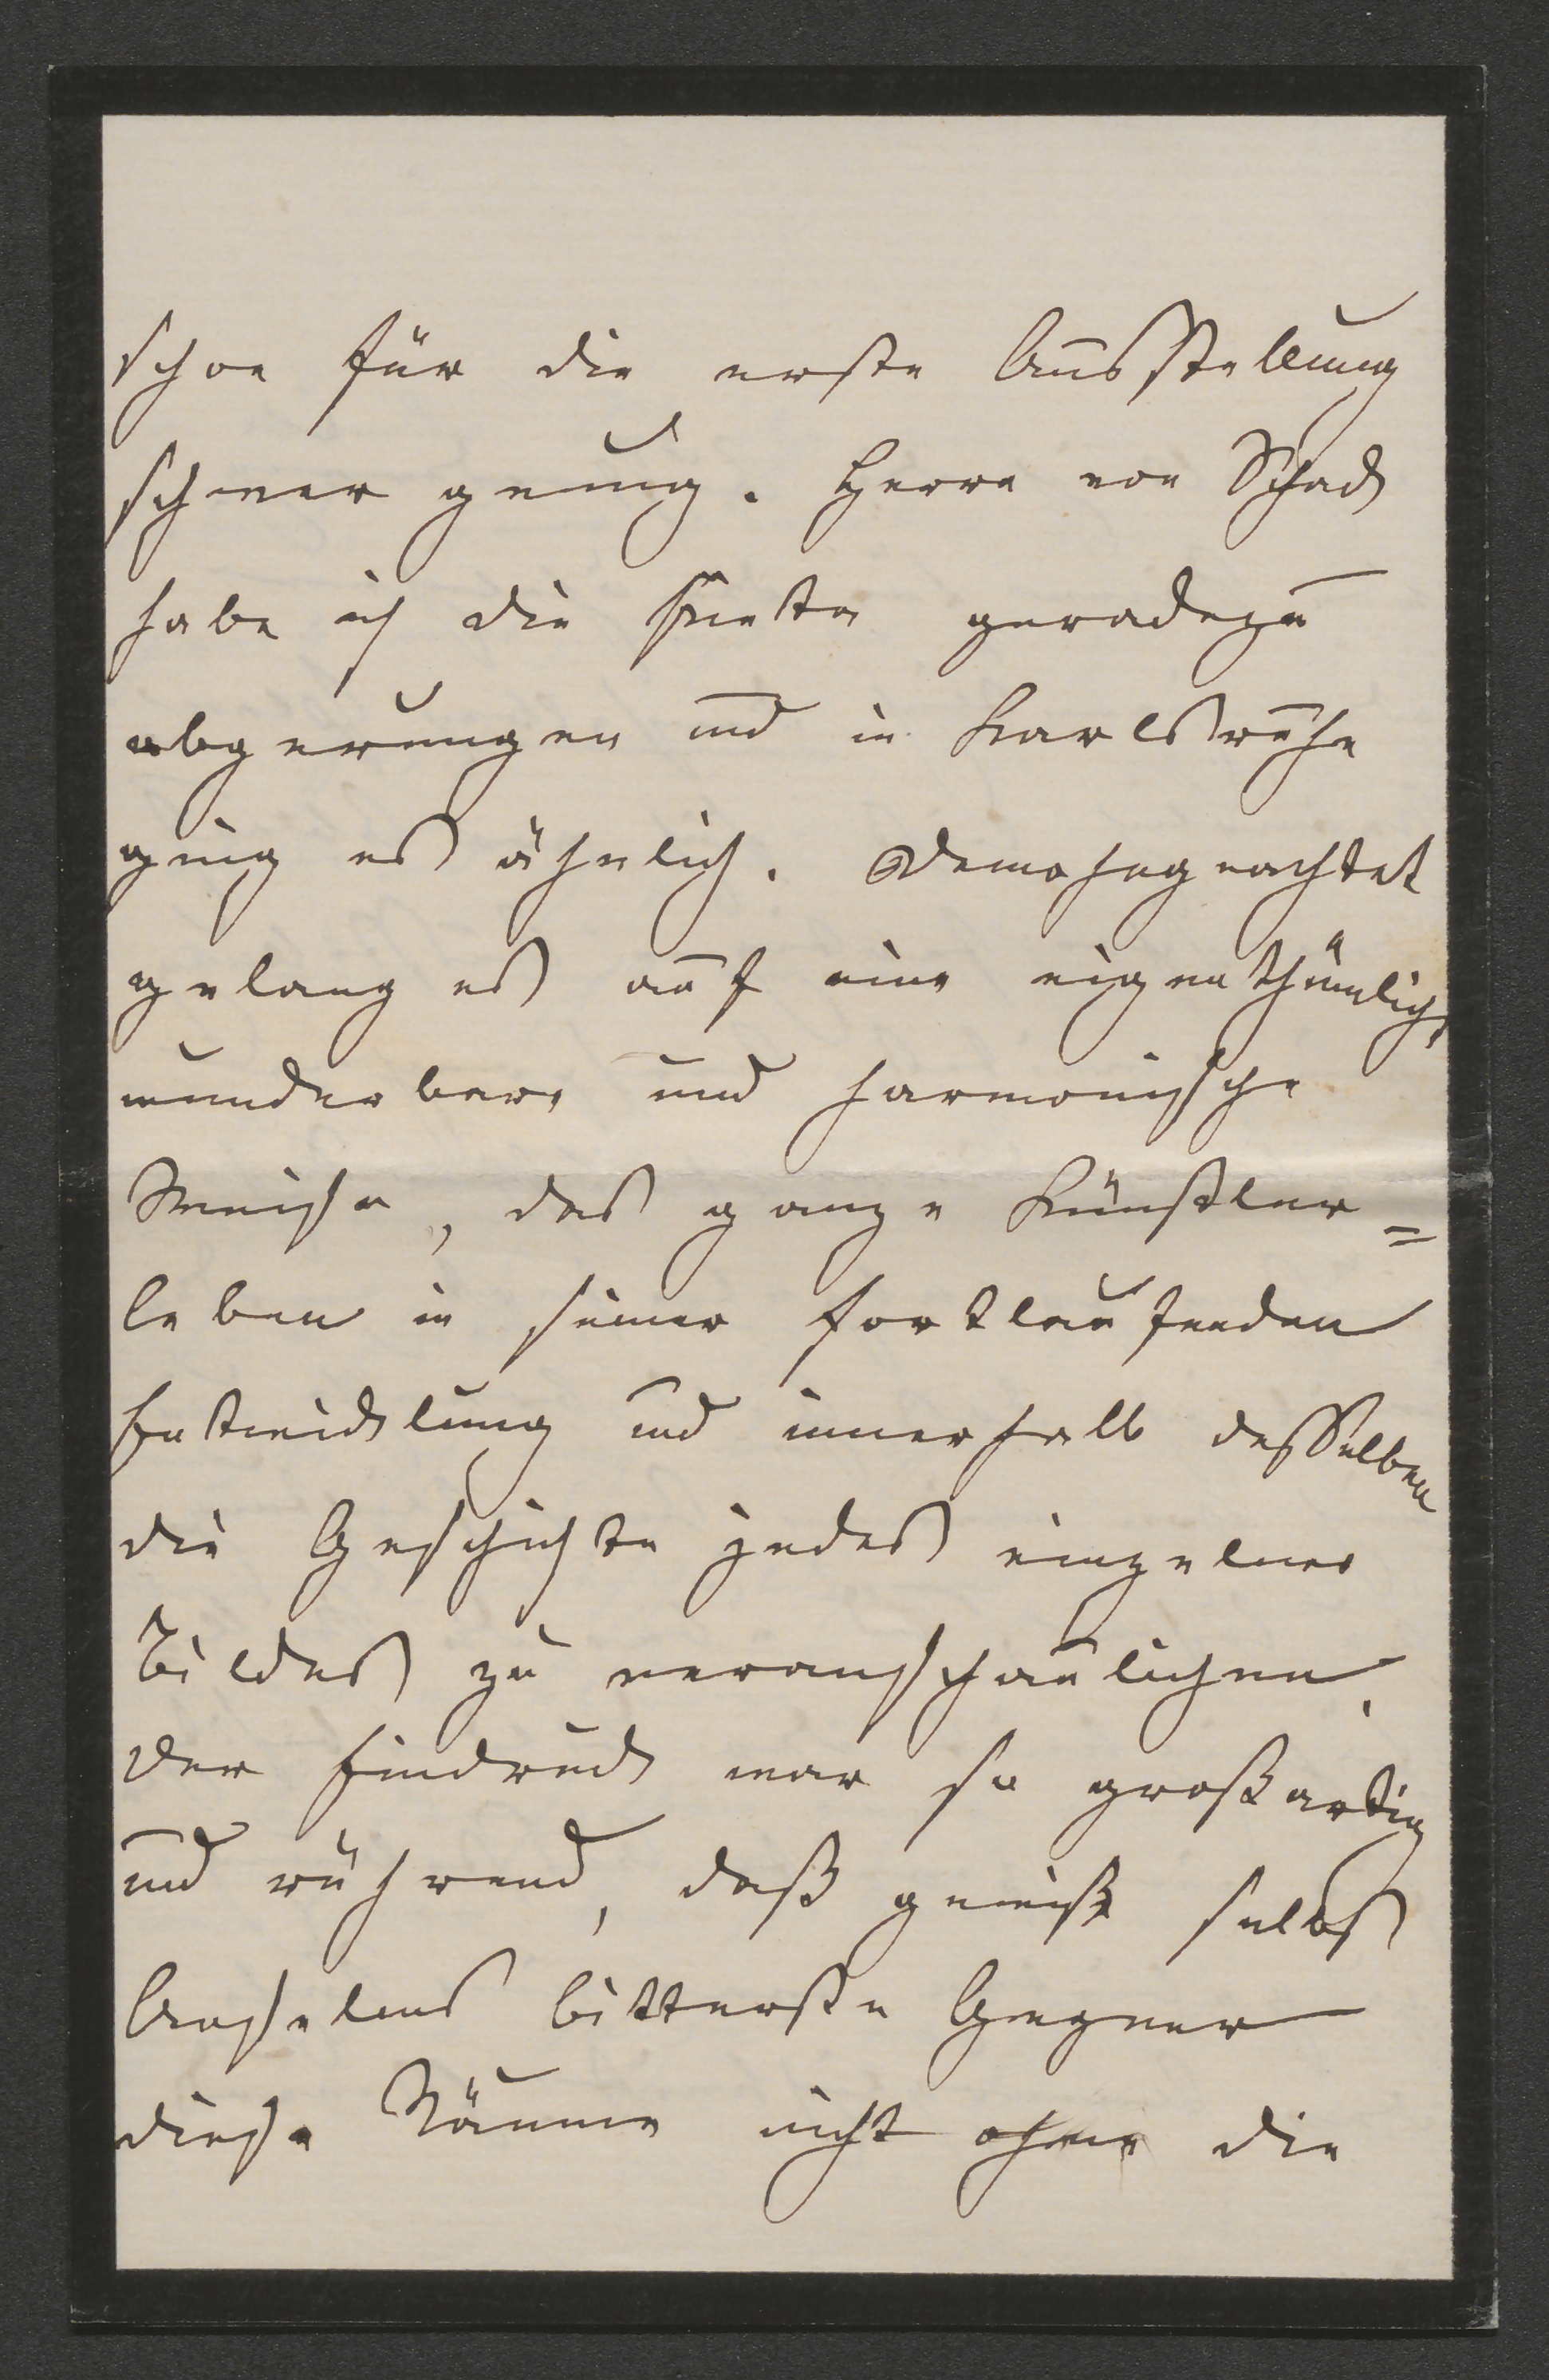 schon für die erste Ausstellung
schwer genug. Herrn von Schack
habe ich die Pieta geradezu
abgerungen und in Karlsruhe
ging es ähnlich. Demohngeachtet
gelang es auf eine eigenthümlich
wunderbare und harmonische
Weise, das ganze Künstler=
leben in seiner fortlaufenden
Entwicklung und innerhalb desselben
die Geschichte jedes einzelnen
Bildes zu veranschaulichen.
Der Eindruck war so großartig
und rührend, daß gewiß selbst
Anselms bitterste Gegner
diese Räume nicht ohne die